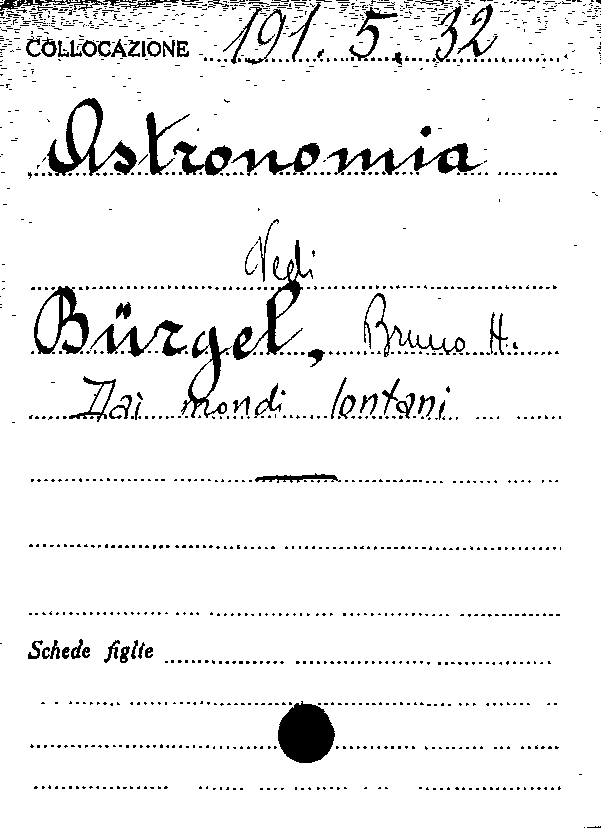 COLLOCAZIONE 191.5.32
Astronomia
Vedi
Bürgel, Bruno H.
Dai mondi lontani
Schede figlie